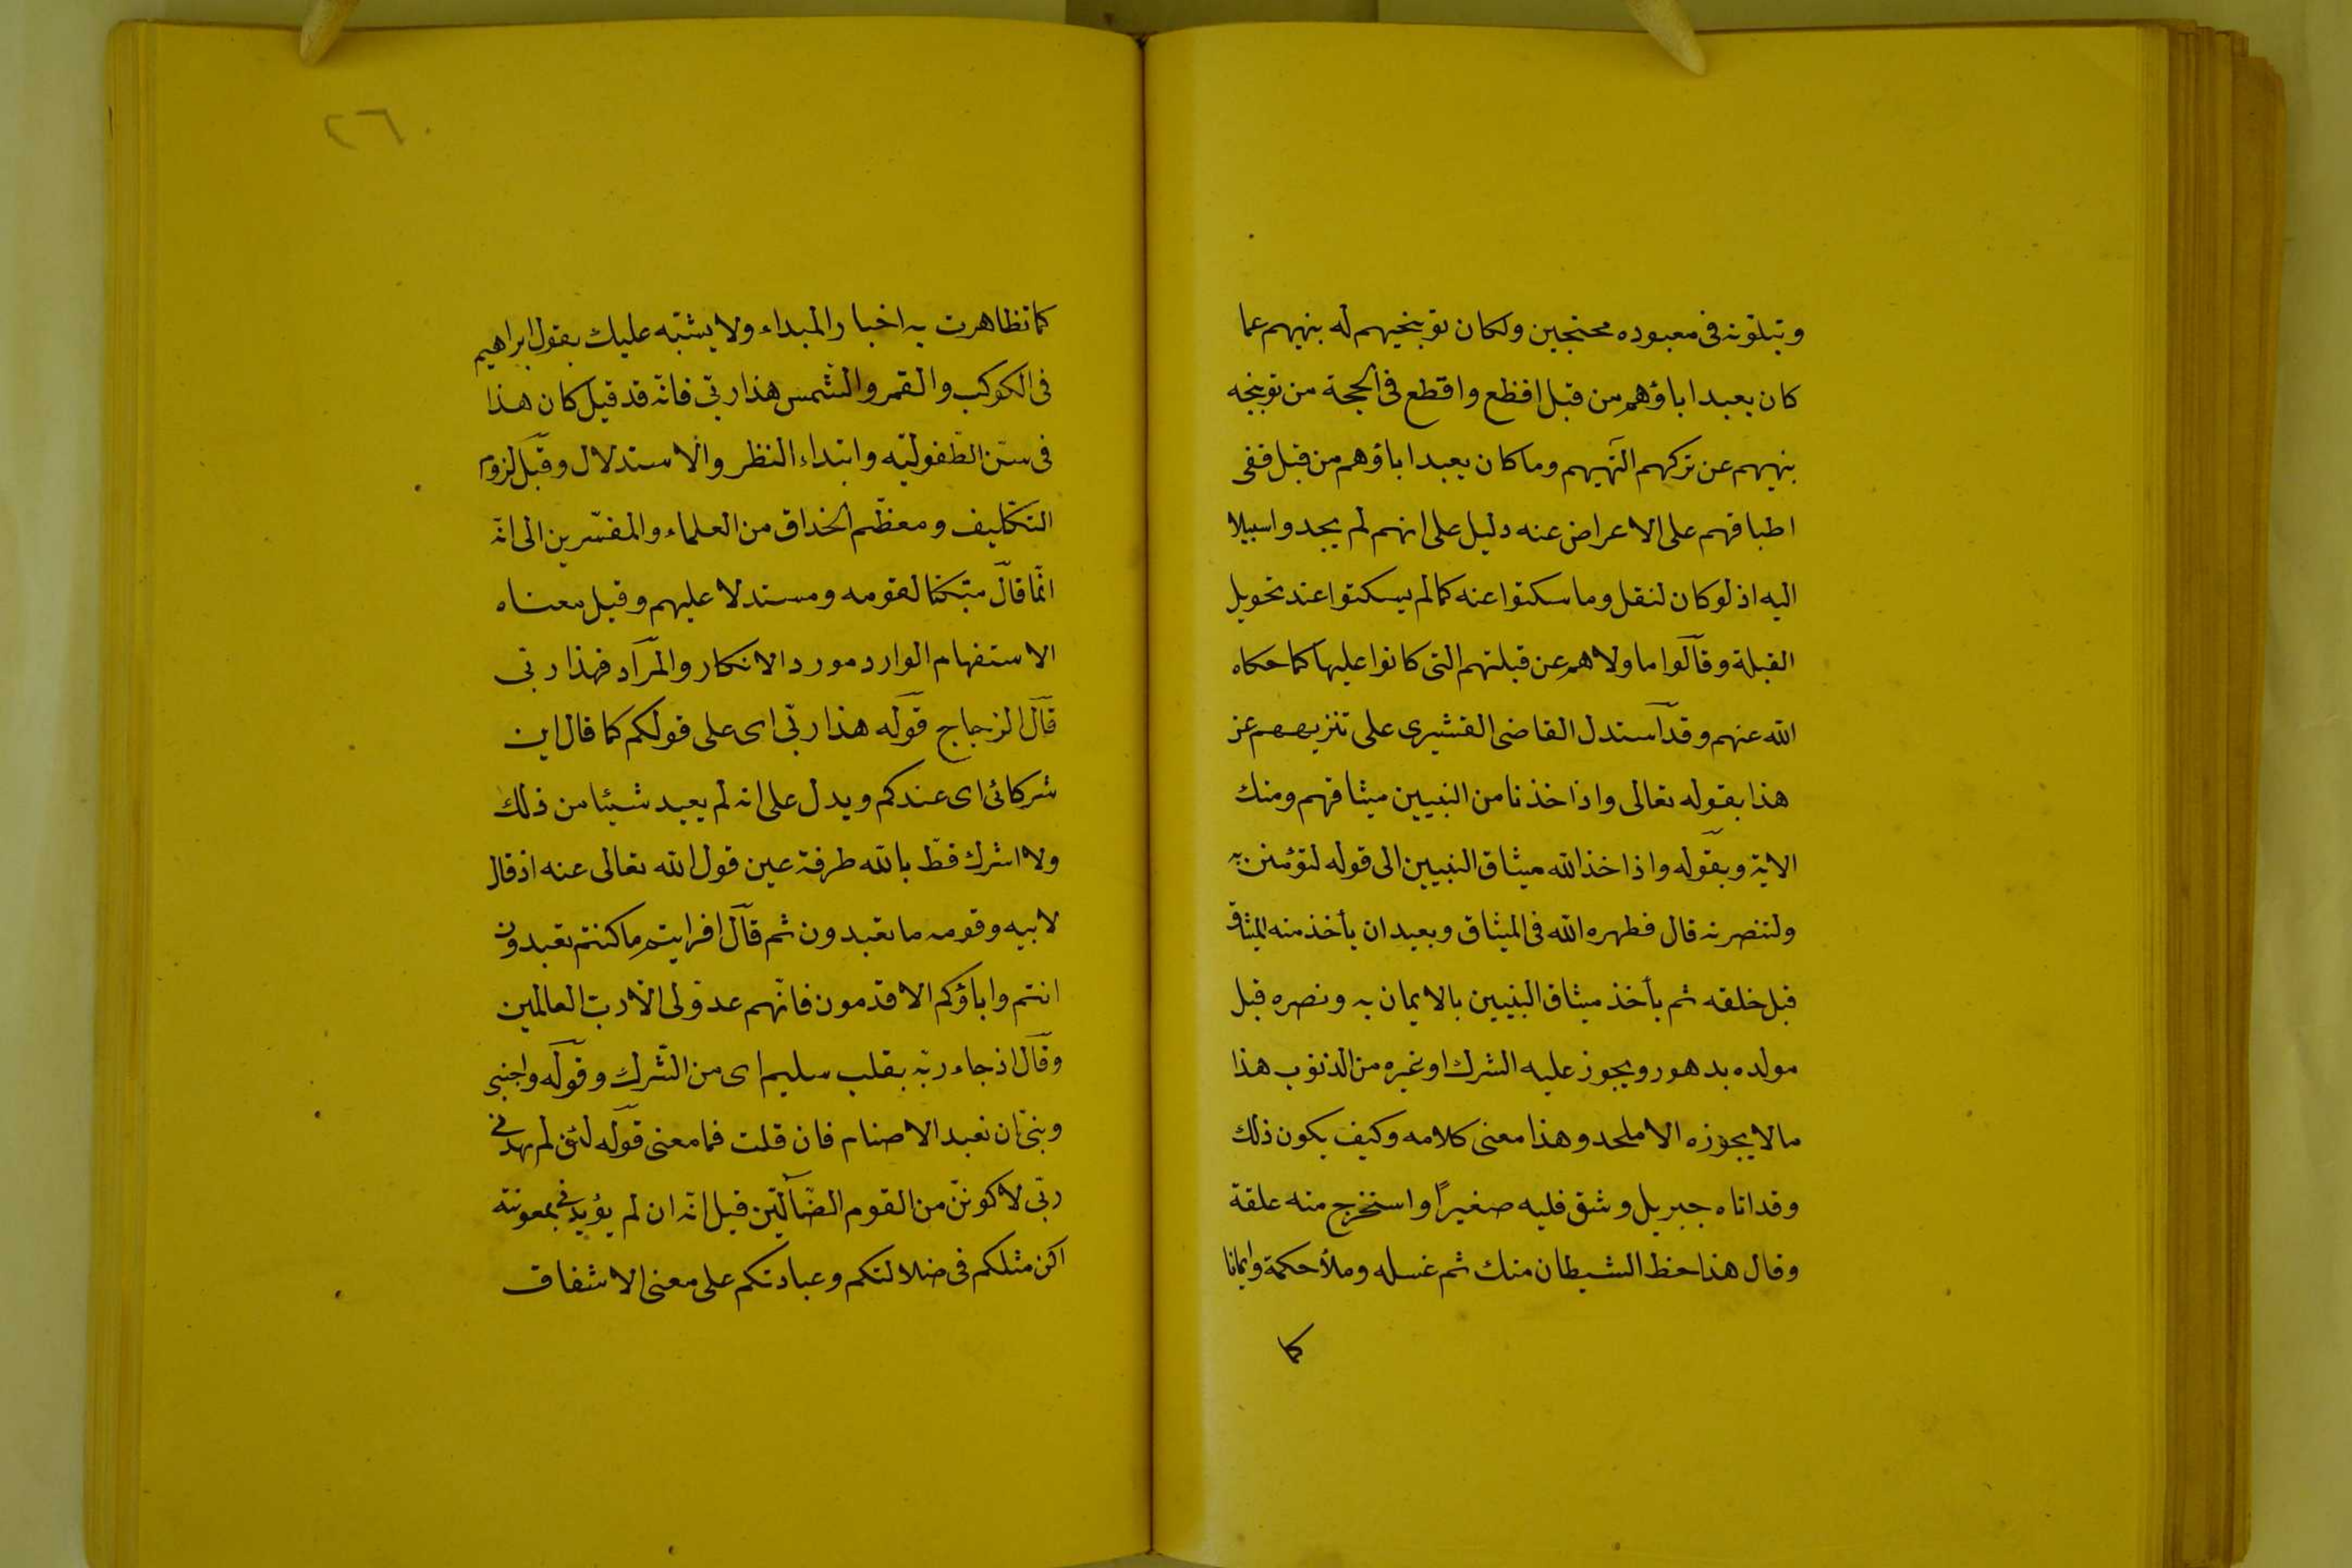 وتبلونه فى معبوده محتجين ولكان توبيخهم له بنهيهم عما
كان يعبد اباؤهم من قبل افظع واقطع فى الحجة من توبيخه
بنهيهم عن تركهم الهتهم وما كان يعبد اباؤهم من قبل ففى
اطباقهم على الاعراض عنه دليل على انهم لم يجدوا سبيلا
اليه اذ لو كان لنقل وما سكتوا عنه كما لم يسكتوا عند تحويل
القبلة وقالوا ما ولاهم عن قبلتهم التى كانوا عليها كما حكاه
الله عنهم وقد استدل القاضى القشيرى على تنزيههم عن
هذا بقوله تعالى واذ اخذنا من النبيين ميثاقهم ومنك
الاية وبقوله واذ اخذ الله ميثاق النبيين الى قوله لتؤمنن به
ولتنصرنه قال فطهره الله فى الميثاق وبعيد ان يأخذ منه الميثاق
قبل خلقه ثم يأخذ ميثاق النبيين بالايمان به ونصره قبل
مولده بدهور ويجوز عليه الشرك او غيره من الذنوب هذا
مالا يجوزه الا ملحد وهذا معنى كلامه وكيف يكون ذلك
وقد اتاه جبريل وشق قلبه صغيرًا واستخرج منه علقة
وقال هذا حظ الشيطان منك ثم غسله وملأ حكمة وايمانا
كما
٢٦
كما تظاهرت به اخبار المبداء ولا يشتبه عليك بقول ابراهيم
فى الكوكب والقمر والشمس هذا ربّى فانّه قد قيل كان هذا
فى سنّ الطّفوليّه وابتداء النظر والاستدلال وقبل لزوم
التكليف ومعظم الحذاق من العلماء والمفسّرين الى انّه
انّما قال مبتكتا لقومه ومستدلا عليهم وقيل معناه
الاستفهام الوارد مورد الانكار والمراد فهذا ربّى
قال الزجاج قوله هذا ربّى اى على قولكم كما قال اين
شركائى اى عندكم ويدل على انه لم يعبد شيئا من ذلك
ولا اشرك قطّ بالله طرفة عين قول الله تعالى عنه اذ قال
لابيه وقومه ما تعبدون ثم قال افرايتم ما كنتم تعبدون
انتم واباؤكم الاقدمون فانّهم عدوّ لى الّا ربّ العالمين
وقال اذ جاء ربّه بقلب سليم اى من الشّرك وقوله واجنبنى
وبنىّ ان نعبد الاصنام فان قلت فما معنى قوله لئن لم يهدنى
ربّى لاكوننّ من القوم الضّالّين قيل انّه ان لم يؤيدنى بمعونته
اكن مثلكم فى ضلالتكم وعبادتكم على معنى الاشفاق